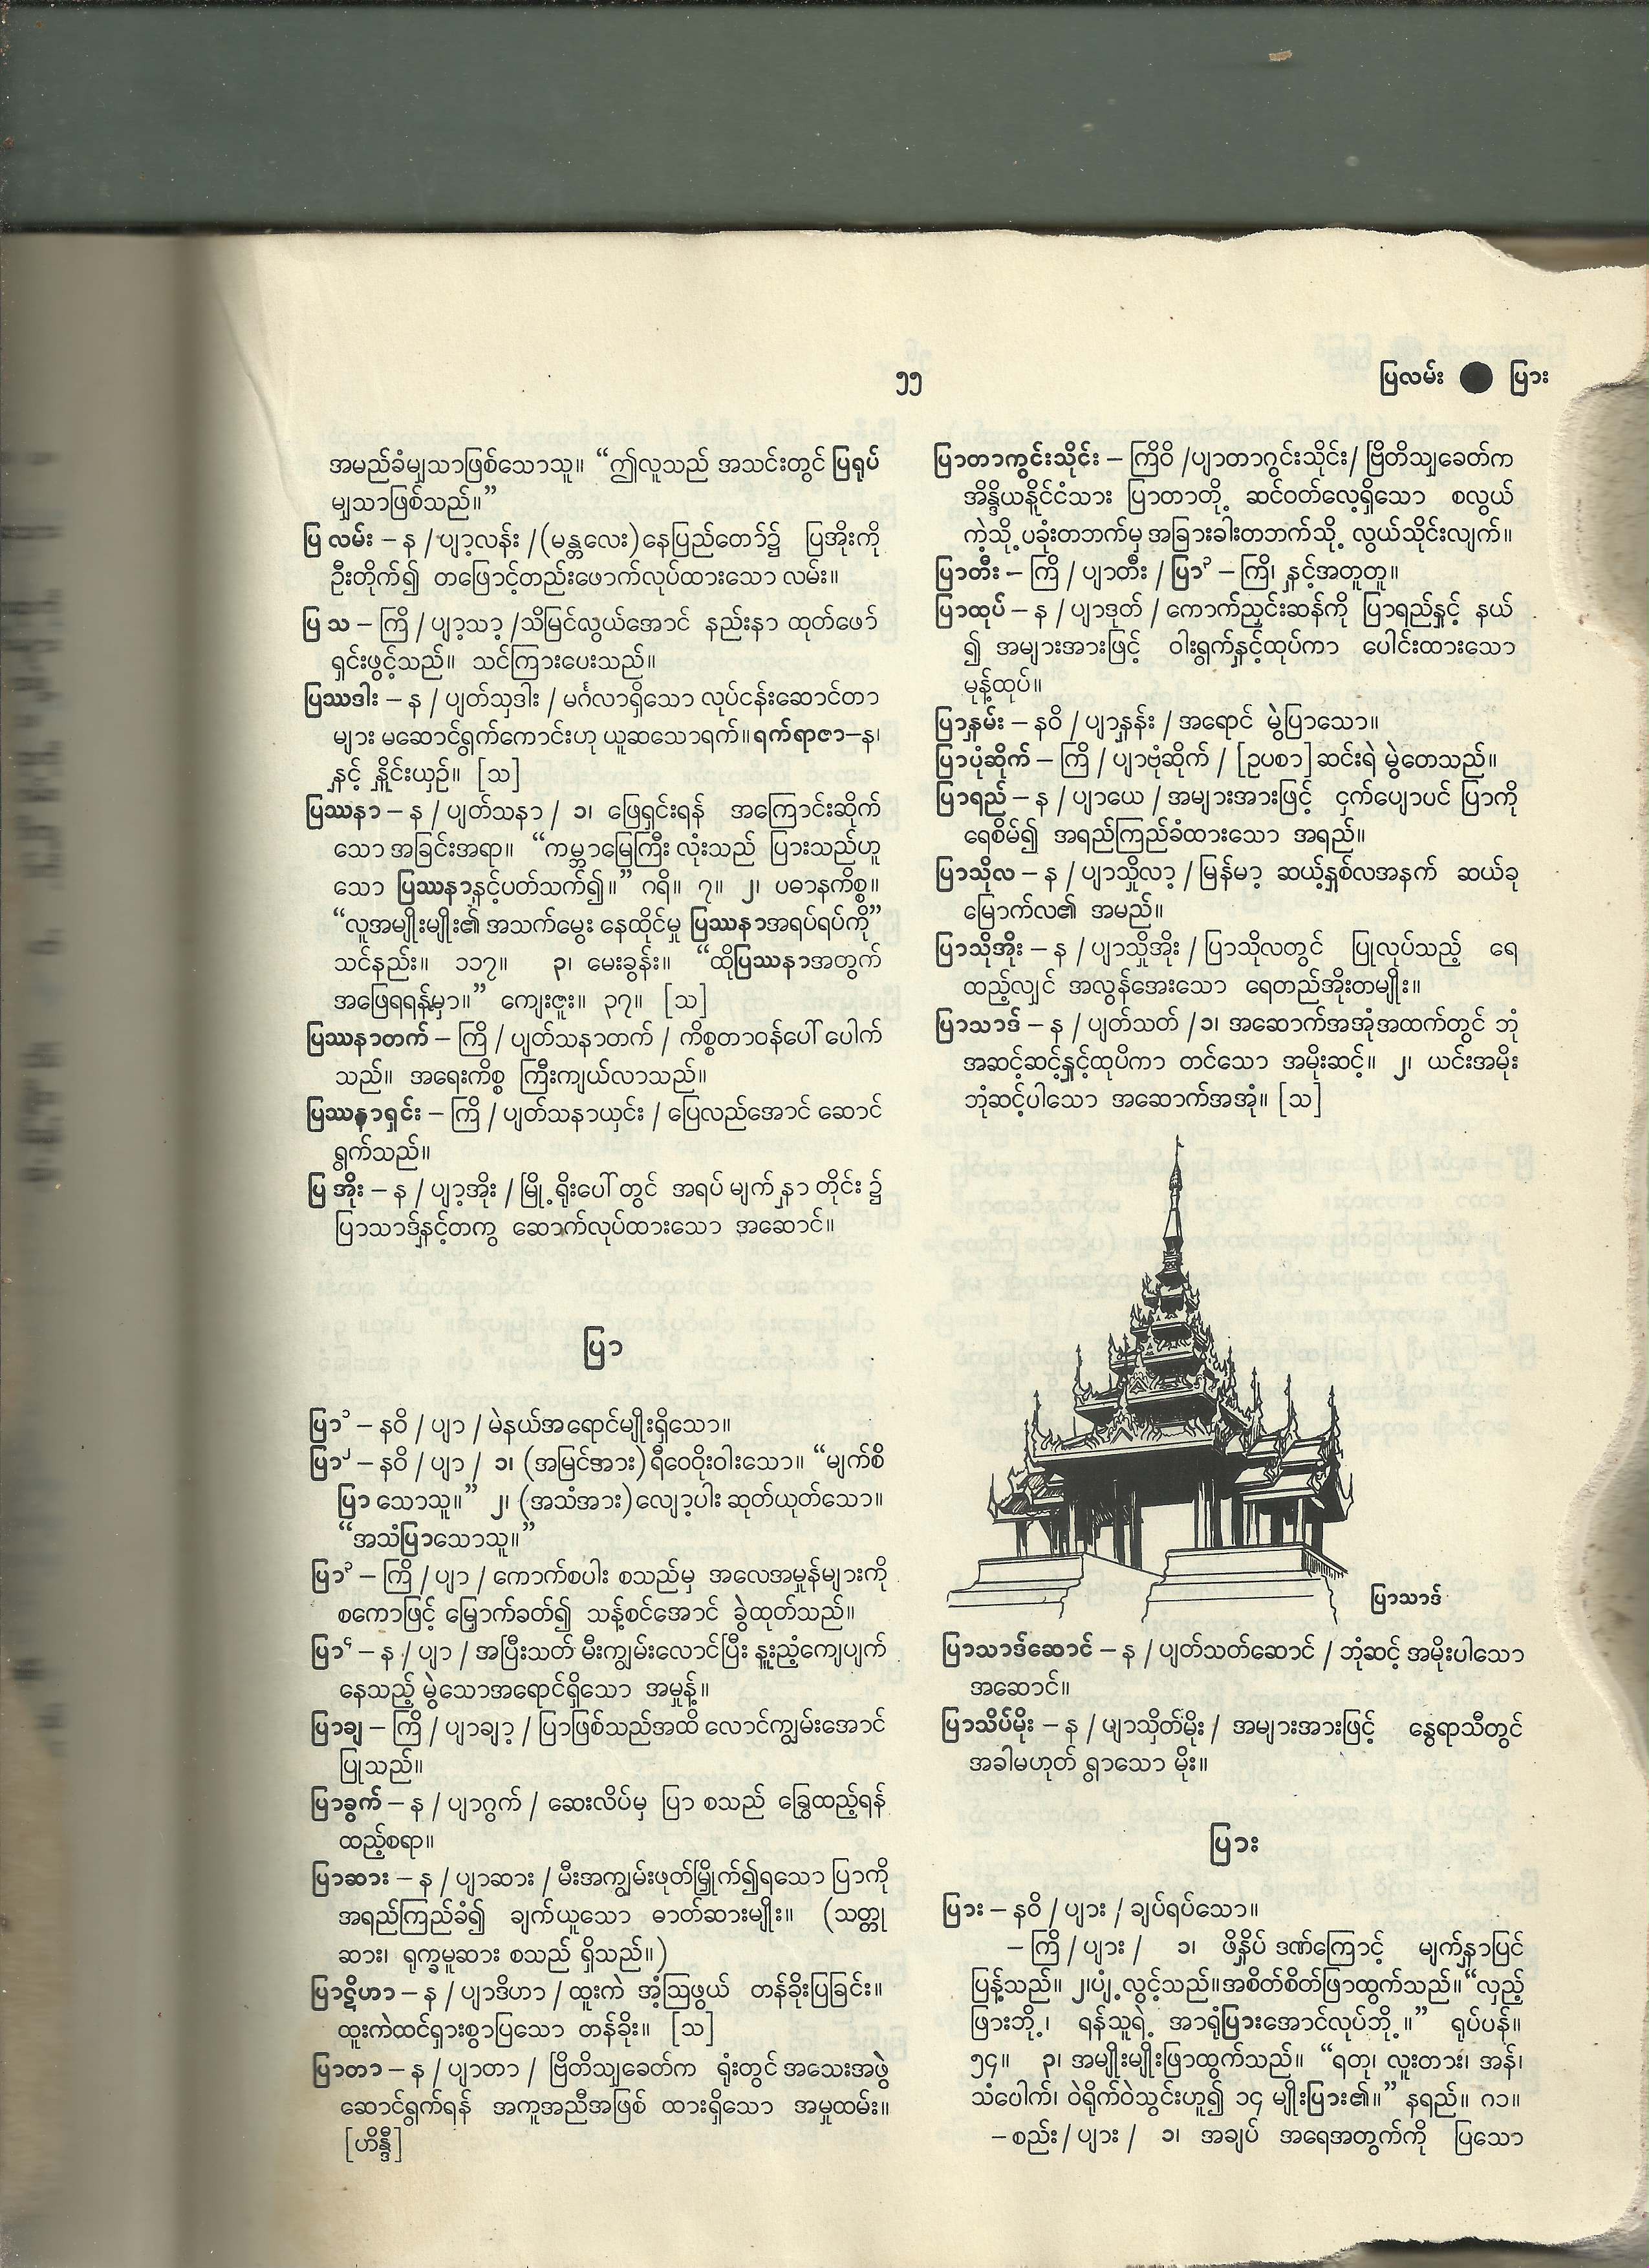 ၅၅
ပြလမ်း ● ပြား
အမည်ခံမျှသာဖြစ်သောသူ။ “ဤလူသည် အသင်းတွင် ပြရုပ်
မျှသာဖြစ်သည်။”
ပြ လမ်း – န / ပျာ့လန်း / (မန္တလေး) နေပြည်တော်၌ ပြအိုးကို
ဦးတိုက်၍ တဖြောင့်တည်းဖောက်လုပ်ထားသော လမ်း။
ပြ သ – ကြိ / ပျာ့သာ့ / သိမြင်လွယ်အောင် နည်းနာ ထုတ်ဖော်
ရှင်းဖွင့်သည်။ သင်ကြားပေးသည်။
ပြဿဒါး – န / ပျတ်သှဒါး / မင်္ဂလာရှိသော လုပ်ငန်းဆောင်တာ
များ မဆောင်ရွက်ကောင်းဟု ယူဆသောရက်။ ရက်ရာဇာ–န၊
နှင့် နှိုင်းယှဉ်။ [သ]
ပြဿနာ – န / ပျတ်သနာ / ၁၊ ဖြေရှင်းရန် အကြောင်းဆိုက်
သော အခြင်းအရာ။ “ကမ္ဘာမြေကြီး လုံးသည် ပြားသည်ဟူ
သော ပြဿနာနှင့်ပတ်သက်၍။” ဂရိ။ ၇။ ၂၊ ပဓာနကိစ္စ။
“လူအမျိုးမျိုး၏ အသက်မွေး နေထိုင်မှု ပြဿနာအရပ်ရပ်ကို”
သင်နည်း။ ၁၁၇။ ၃၊ မေးခွန်း။ “ထိုပြဿနာအတွက်
အဖြေရရန်မှာ။” ကျေးဇူး။ ၃၇။ [သ]
ပြဿနာတက် – ကြိ / ပျတ်သနာတက် / ကိစ္စတာဝန်ပေါ် ပေါက်
သည်။ အရေးကိစ္စ ကြီးကျယ်လာသည်။
ပြဿနာရှင်း – ကြိ / ပျတ်သနာယှင်း / ပြေလည်အောင် ဆောင်
ရွက်သည်။
ပြ အိုး – န / ပျာ့အိုး / မြို့ရိုးပေါ် တွင် အရပ် မျက် နှာ တိုင်း ၌
ပြာသာဒ်နှင့်တကွ ဆောက်လုပ်ထားသော အဆောင်။
ပြာ
ပြာ၁ – နဝိ / ပျာ / မဲနယ်အရောင်မျိုးရှိသော။
ပြာ၂ – နဝိ / ပျာ / ၁၊ (အမြင်အား) ရီဝေဝိုးဝါးသော။ “မျက်စိ
ပြာ သောသူ။” ၂၊ (အသံအား) လျော့ပါး ဆုတ်ယုတ်သော။
“အသံပြာသောသူ။”
ပြာ၃ – ကြိ / ပျာ / ကောက်စပါး စသည်မှ အလေအမှုန်များကို
စကောဖြင့် မြှောက်ခတ်၍ သန့်စင်အောင် ခွဲထုတ်သည်။
ပြာ၄ – န / ပျာ / အပြီးသတ် မီးကျွမ်းလောင်ပြီး နူးညံ့ကျေပျက်
နေသည့် မွဲသောအရောင်ရှိသော အမှုန့်။
ပြာချ – ကြိ / ပျာချာ့ / ပြာဖြစ်သည်အထိ လောင်ကျွမ်းအောင်
ပြုသည်။
ပြာခွက် – န / ပျာဂွက် / ဆေးလိပ်မှ ပြာ စသည် ခြွေထည့်ရန်
ထည့်စရာ။
ပြာဆား – န / ပျာဆား / မီးအကျွမ်းဖုတ်မြှိုက်၍ရသော ပြာကို
အရည်ကြည်ခံ၍ ချက်ယူသော ဓာတ်ဆားမျိုး။ (သတ္တု
ဆား၊ ရုက္ခမူဆား စသည် ရှိသည်။)
ပြာဋိဟာ – န / ပျာဒိဟာ / ထူးကဲ အံ့ဩဖွယ် တန်ခိုးပြခြင်း။
ထူးကဲထင်ရှားစွာပြသော တန်ခိုး။ [သ]
ပြာတာ – န / ပျာတာ / ဗြိတိသျှခေတ်က ရုံးတွင် အသေးအဖွဲ
ဆောင်ရွက်ရန် အကူအညီအဖြစ် ထားရှိသော အမှုထမ်း။
[ဟိန္ဒီ]
ပြာတာကွင်းသိုင်း – ကြိဝိ / ပျာတာဂွင်းသိုင်း / ဗြိတိသျှခေတ်က
အိန္ဒိယနိုင်ငံသား ပြာတာတို့ ဆင်ဝတ်လေ့ရှိသော စလွယ်
ကဲ့သို့ ပခုံးတဘက်မှ အခြားခါးတဘက်သို့ လွယ်သိုင်းလျက်။
ပြာတီး – ကြိ / ပျာတီး / ပြာ၃ – ကြိ၊ နှင့်အတူတူ။
ပြာထုပ် – န / ပျာဒုတ် / ကောက်ညှင်းဆန်ကို ပြာရည်နှင့် နယ်
၍ အများအားဖြင့် ဝါးရွက်နှင့်ထုပ်ကာ ပေါင်းထားသော
မုန့်ထုပ်။
ပြာနှမ်း – နဝိ / ပျာနှန်း / အရောင် မွဲပြာသော။
ပြာပုံဆိုက် – ကြိ / ပျာဗုံဆိုက် / [ဥပစာ] ဆင်းရဲ မွဲတေသည်။
ပြာရည် – န / ပျာယေ / အများအားဖြင့် ငှက်ပျောပင် ပြာကို
ရေစိမ်၍ အရည်ကြည်ခံထားသော အရည်။
ပြာသိုလ – န / ပျာသှိုလာ့ / မြန်မာ့ ဆယ့်နှစ်လအနက် ဆယ်ခု
မြောက်လ၏ အမည်။
ပြာသိုအိုး – န / ပျာသှိုအိုး / ပြာသိုလတွင် ပြုလုပ်သည့် ရေ
ထည့်လျှင် အလွန်အေးသော ရေတည်အိုးတမျိုး။
ပြာသာဒ် – န / ပျတ်သတ် / ၁၊ အဆောက်အအုံအထက်တွင် ဘုံ
အဆင့်ဆင့်နှင့်ထုပိကာ တင်သော အမိုးဆင့်။ ၂၊ ယင်းအမိုး
ဘုံဆင့်ပါသော အဆောက်အအုံ။ [သ]
ပြာသာဒ်
ပြာသာဒ်ဆောင် – န / ပျတ်သတ်ဆောင် / ဘုံဆင့် အမိုးပါသော
အဆောင်။
ပြာသိပ်မိုး – န / ဖျာသှိတ်မိုး / အများအားဖြင့် နွေရာသီတွင်
အခါမဟုတ် ရွာသော မိုး။
ပြား
ပြား – နဝိ / ပျား / ချပ်ရပ်သော။
– ကြိ / ပျား / ၁၊ ဖိနှိပ် ဒဏ်ကြောင့် မျက်နှာပြင်
ပြန့်သည်။ ၂၊ပျံ့လွင့်သည်။အစိတ်စိတ်ဖြာထွက်သည်။“လှည့်
ဖြားဘို့၊ ရန်သူရဲ့ အာရုံပြားအောင်လုပ်ဘို့။” ရုပ်ပန်။
၅၄။ ၃၊ အမျိုးမျိုးဖြာထွက်သည်။ “ရတု၊ လူးတား၊ အန်၊
သံပေါက်၊ ဝဲရိုက်ဝဲသွင်းဟူ၍ ၁၄ မျိုးပြား၏။” နရည်။ ဂ၁။
– စည်း / ပျား / ၁၊ အချပ် အရေအတွက်ကို ပြသော